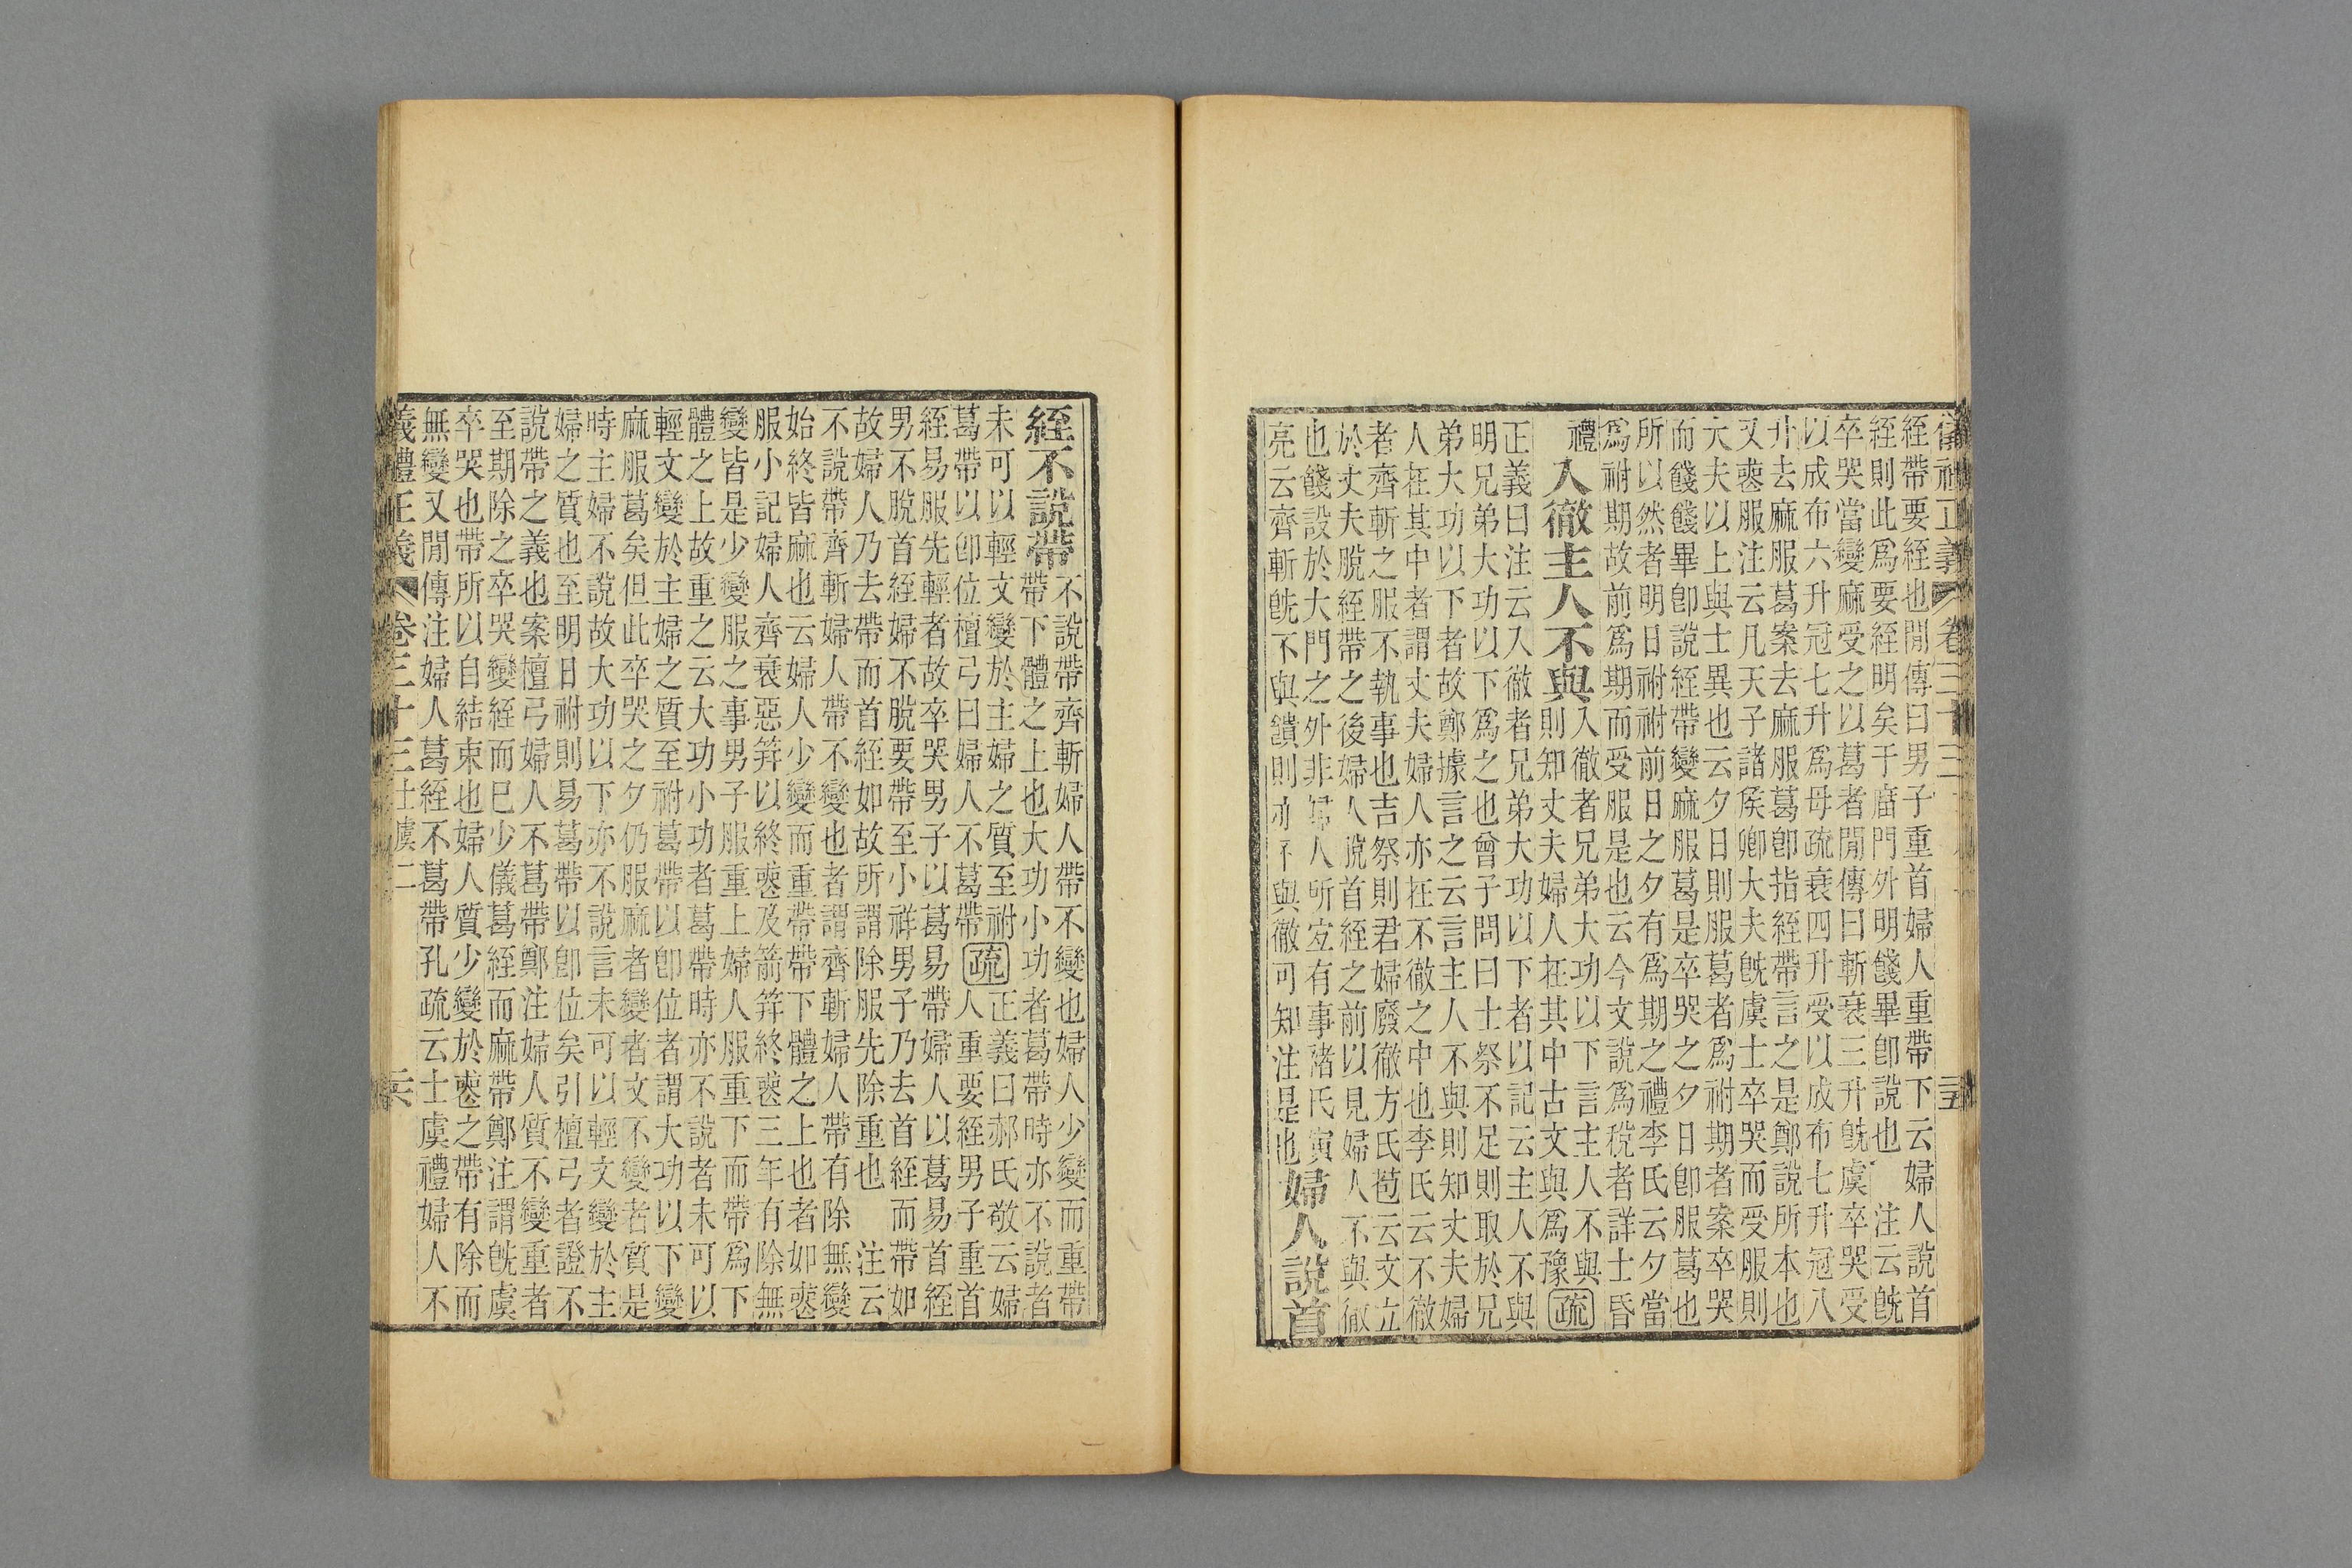 儀禮正義 卷三十三 三五
絰帶要絰也閒傳曰男子重首婦人重帶下云婦人說首
絰則此爲要絰明矣于庿門外明餞畢卽說也 注云旣
卒哭當變麻受之以葛者閒傳曰斬衰三升旣虞卒哭受
以成布六升冠七升爲母疏衰四升受以成布七升冠八
升去麻服葛案去麻服葛卽指絰帶言之是鄭說所本也
又喪服注云凡天子諸矦卿大夫旣虞士卒哭而受服則
大夫以上與士異也云夕日則服葛者爲祔期者案卒哭
而餞餞畢卽說絰帶變麻服葛是卒哭之夕日卽服葛也
所以然者明日祔祔前日之夕有爲期之禮李氏云夕當
爲祔期故前爲期而受服是也云今文說爲稅者詳士昏
禮
入徹主人不與
入徹者兄弟大功以下言主人不與
則知丈夫婦人在其中古文與爲豫
疏
正義曰注云入徹者兄弟大功以下者以記云主人不與
明兄弟大功以下爲之也曾子問曰士祭不足則取於兄
弟大功以下者故鄭據言之云言主人不與則知丈夫婦
人在其中者謂丈夫婦人亦在不徹之中也李氏云不徹
者齊斬之服不執事也吉祭則君婦廢徹方氏苞云文立
於丈夫脫絰帶之後婦人說首絰之前以見婦人不與徹
也餞設於大門之外非婦人所宜有事褚氏寅
亮云齊斬旣不與饋則亦不與徹可知注是也
婦人說首
絰不說帶
不說帶齊斬婦人帶不變也婦人少變而重帶
帶下體之上也大功小功者葛帶時亦不說者
未可以輕文變於主婦之質至祔
葛帶以卽位檀弓曰婦人不葛帶
疏
正義曰郝氏敬云婦
人重要絰男子重首
絰易服先輕者故卒哭男子以葛易帶婦人以葛易首絰
男不脫首絰婦不脫要帶至小祥男子乃去首絰而帶如
故婦人乃去帶而首絰如故所謂除服先除重也 注云
不說帶齊斬婦人帶不變也者謂齊斬婦人帶有除無變
始終皆麻也云婦人少變而重帶帶下體之上也者如喪
服小記婦人齊衰惡笄以終喪及箭笄終喪三年有除無
變皆是少變服之事男子服重上婦人服重下而帶爲下
體之上故重之云大功小功者葛帶時亦不說者未可以
輕文變於主婦之質至祔葛帶以卽位者謂大功以下變
麻服葛矣但此卒哭之夕仍服麻者變者文不變者質是
時主婦不說故大功以下亦不說言未可以輕文變於主
婦之質也至明日祔則易葛帶以卽位矣引檀弓者證不
說帶之義也案檀弓婦人不葛帶鄭注婦人質不變重者
至期除之卒哭變絰而已少儀葛絰而麻帶鄭注謂旣虞
卒哭也帶所以自結束也婦人質少變於喪之帶有除而
無變又閒傳注婦人葛絰不葛帶孔疏云士虞禮婦人不
儀禮正義 卷三十三 士虞二 三六